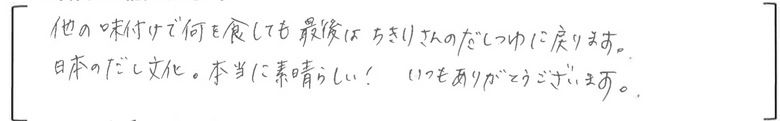 他の味付けで何を食しても最後はちきりさんのだしつゆに戻ります。
日本のだし文化。本当に素晴らしい！ いつもありがとうございます。